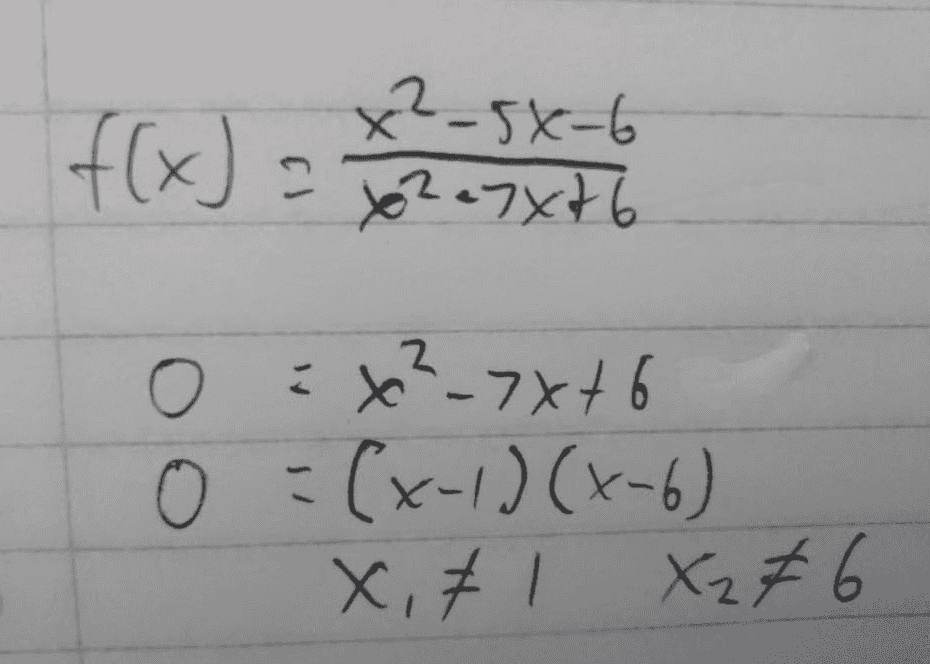 f(x) = x²-5x-6 / x²-7x+6
0 = x²-7x+6
0 = (x-1)(x-6)
x₁ ≠ 1 x₂ ≠ 6